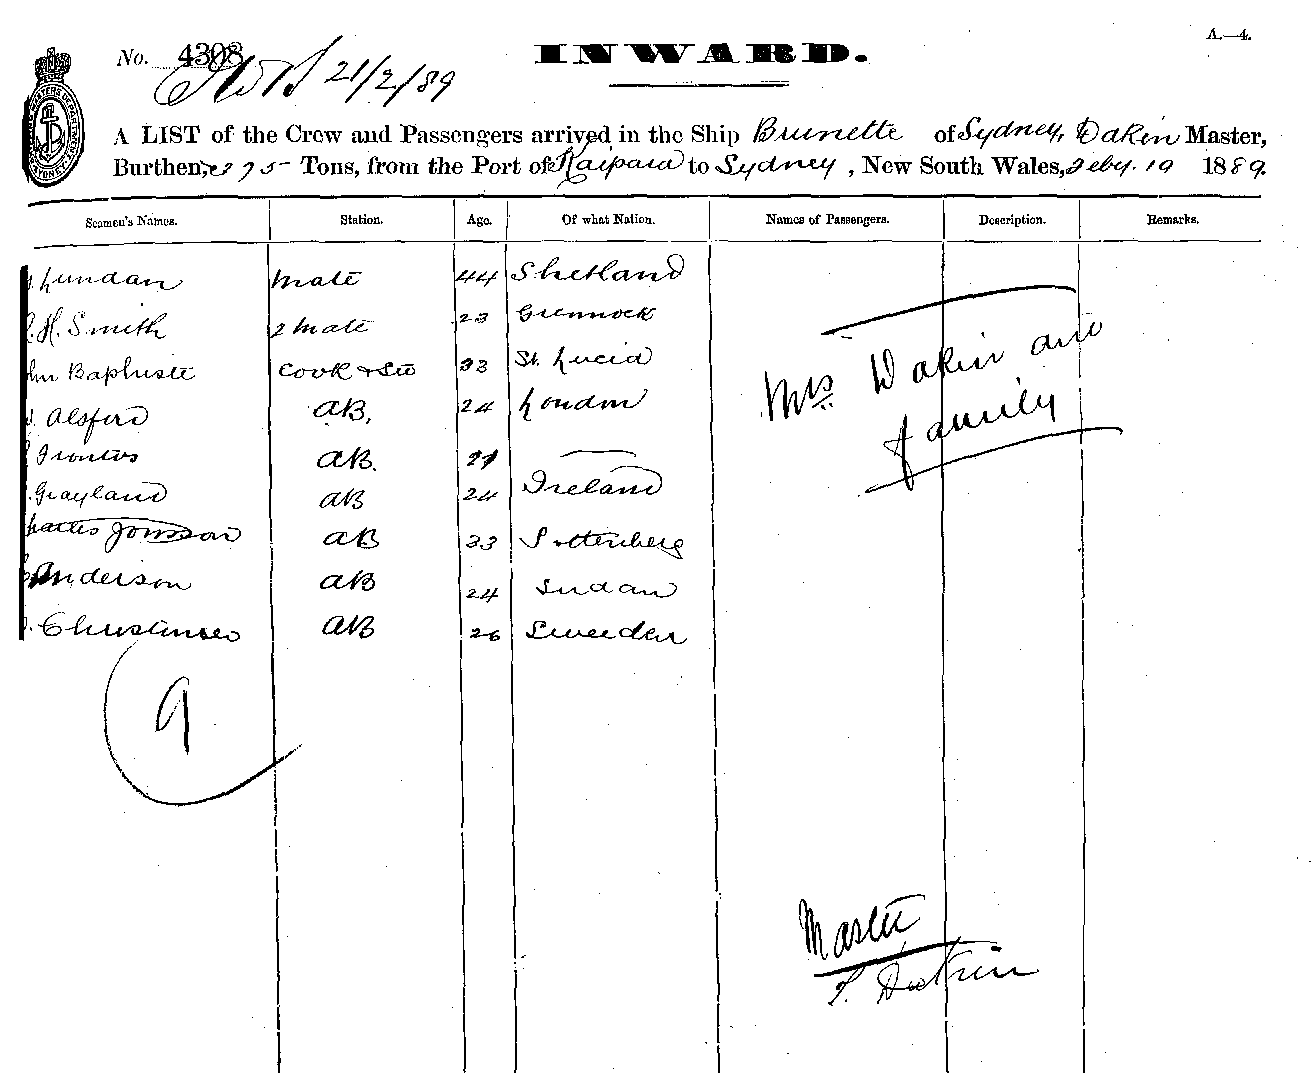 A.—4.
No. 4308 INWARD.
21/2/89
A LIST of the Crew and Passengers arrived in the Ship Brunette of Sydney, Dakin Master,
Burthen, 275 Tons, from the Port of Kaipara to Sydney, New South Wales, Feby. 19 1889.
Seamen's Names. Station. Age. Of what Nation. Names of Passengers. Description. Remarks.
Lundan Mate 44 Shetland
H. Smith 2 Mate 23 Greennock
hn Baptiste Cook & Std 33 St. Lucia
Alsford AB. 24 London
AB. 21 —
Grayland AB 24 Ireland
harles Jonsson AB 33 Gottenberg
Anderson AB 24
Christensen AB 26 Sweeden
Mrs Dakin and
family
9
Master
Dakin